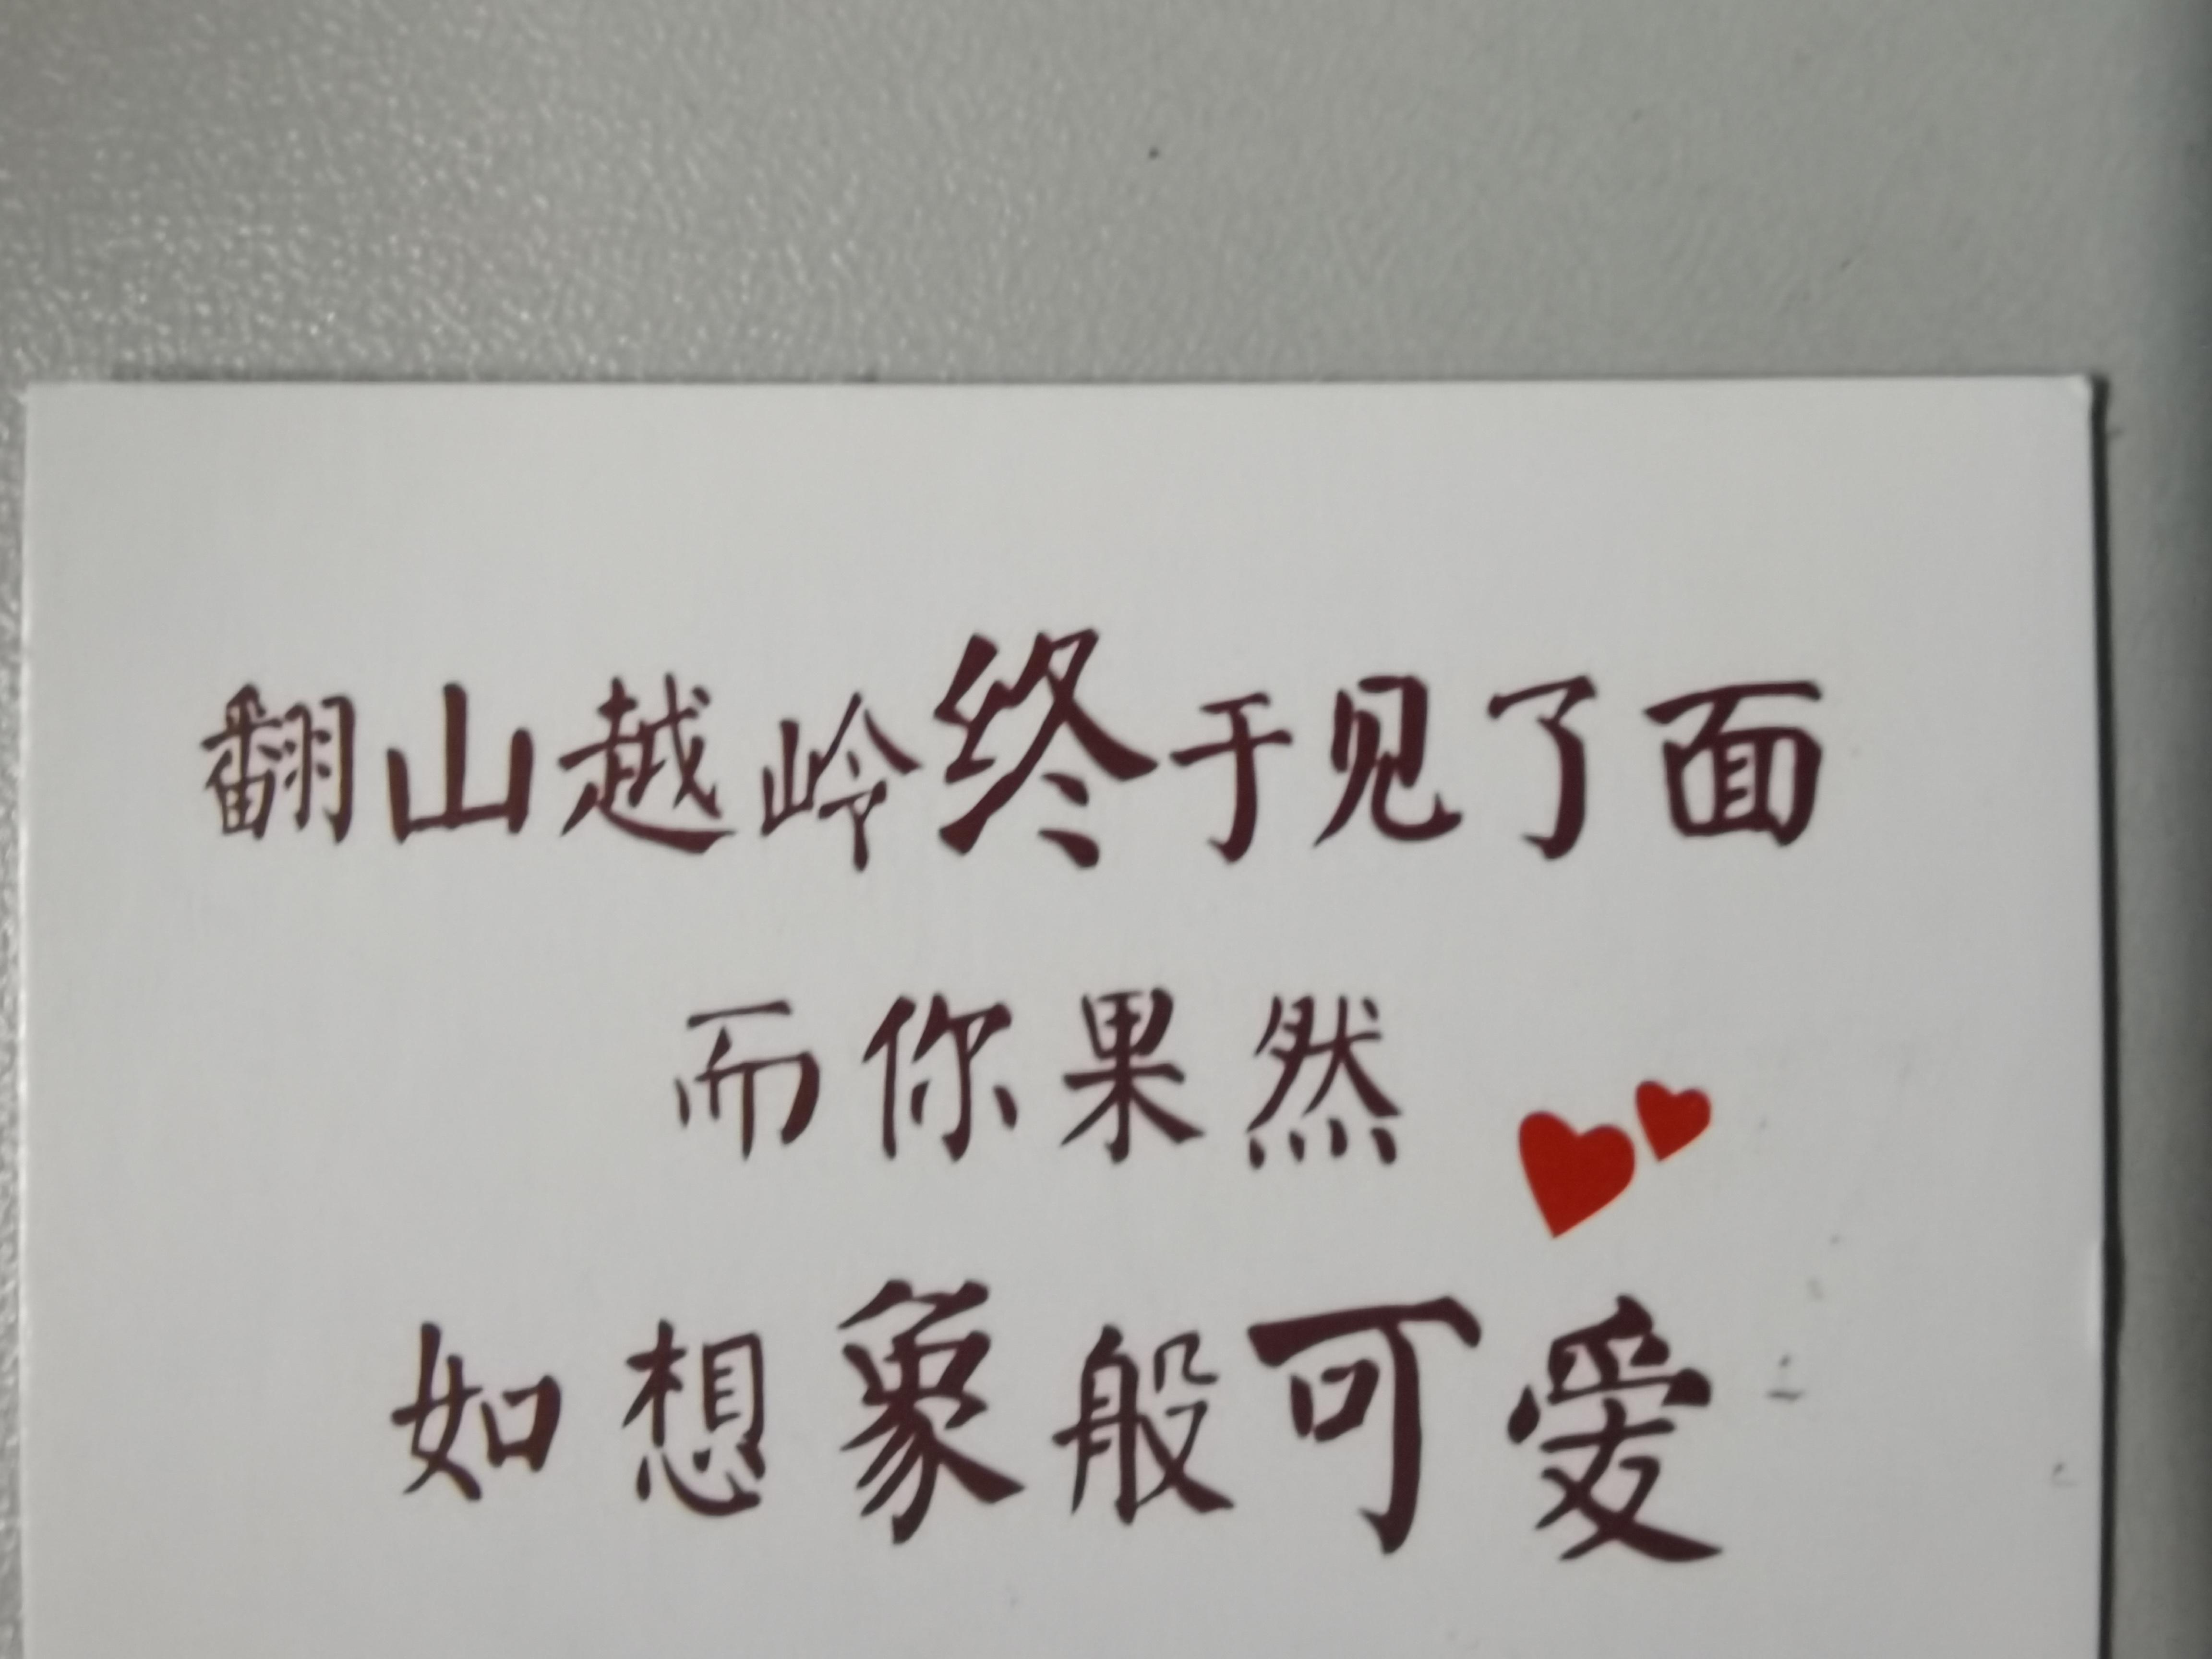 翻山越岭终于见了面
而你果然
如想象般可爱